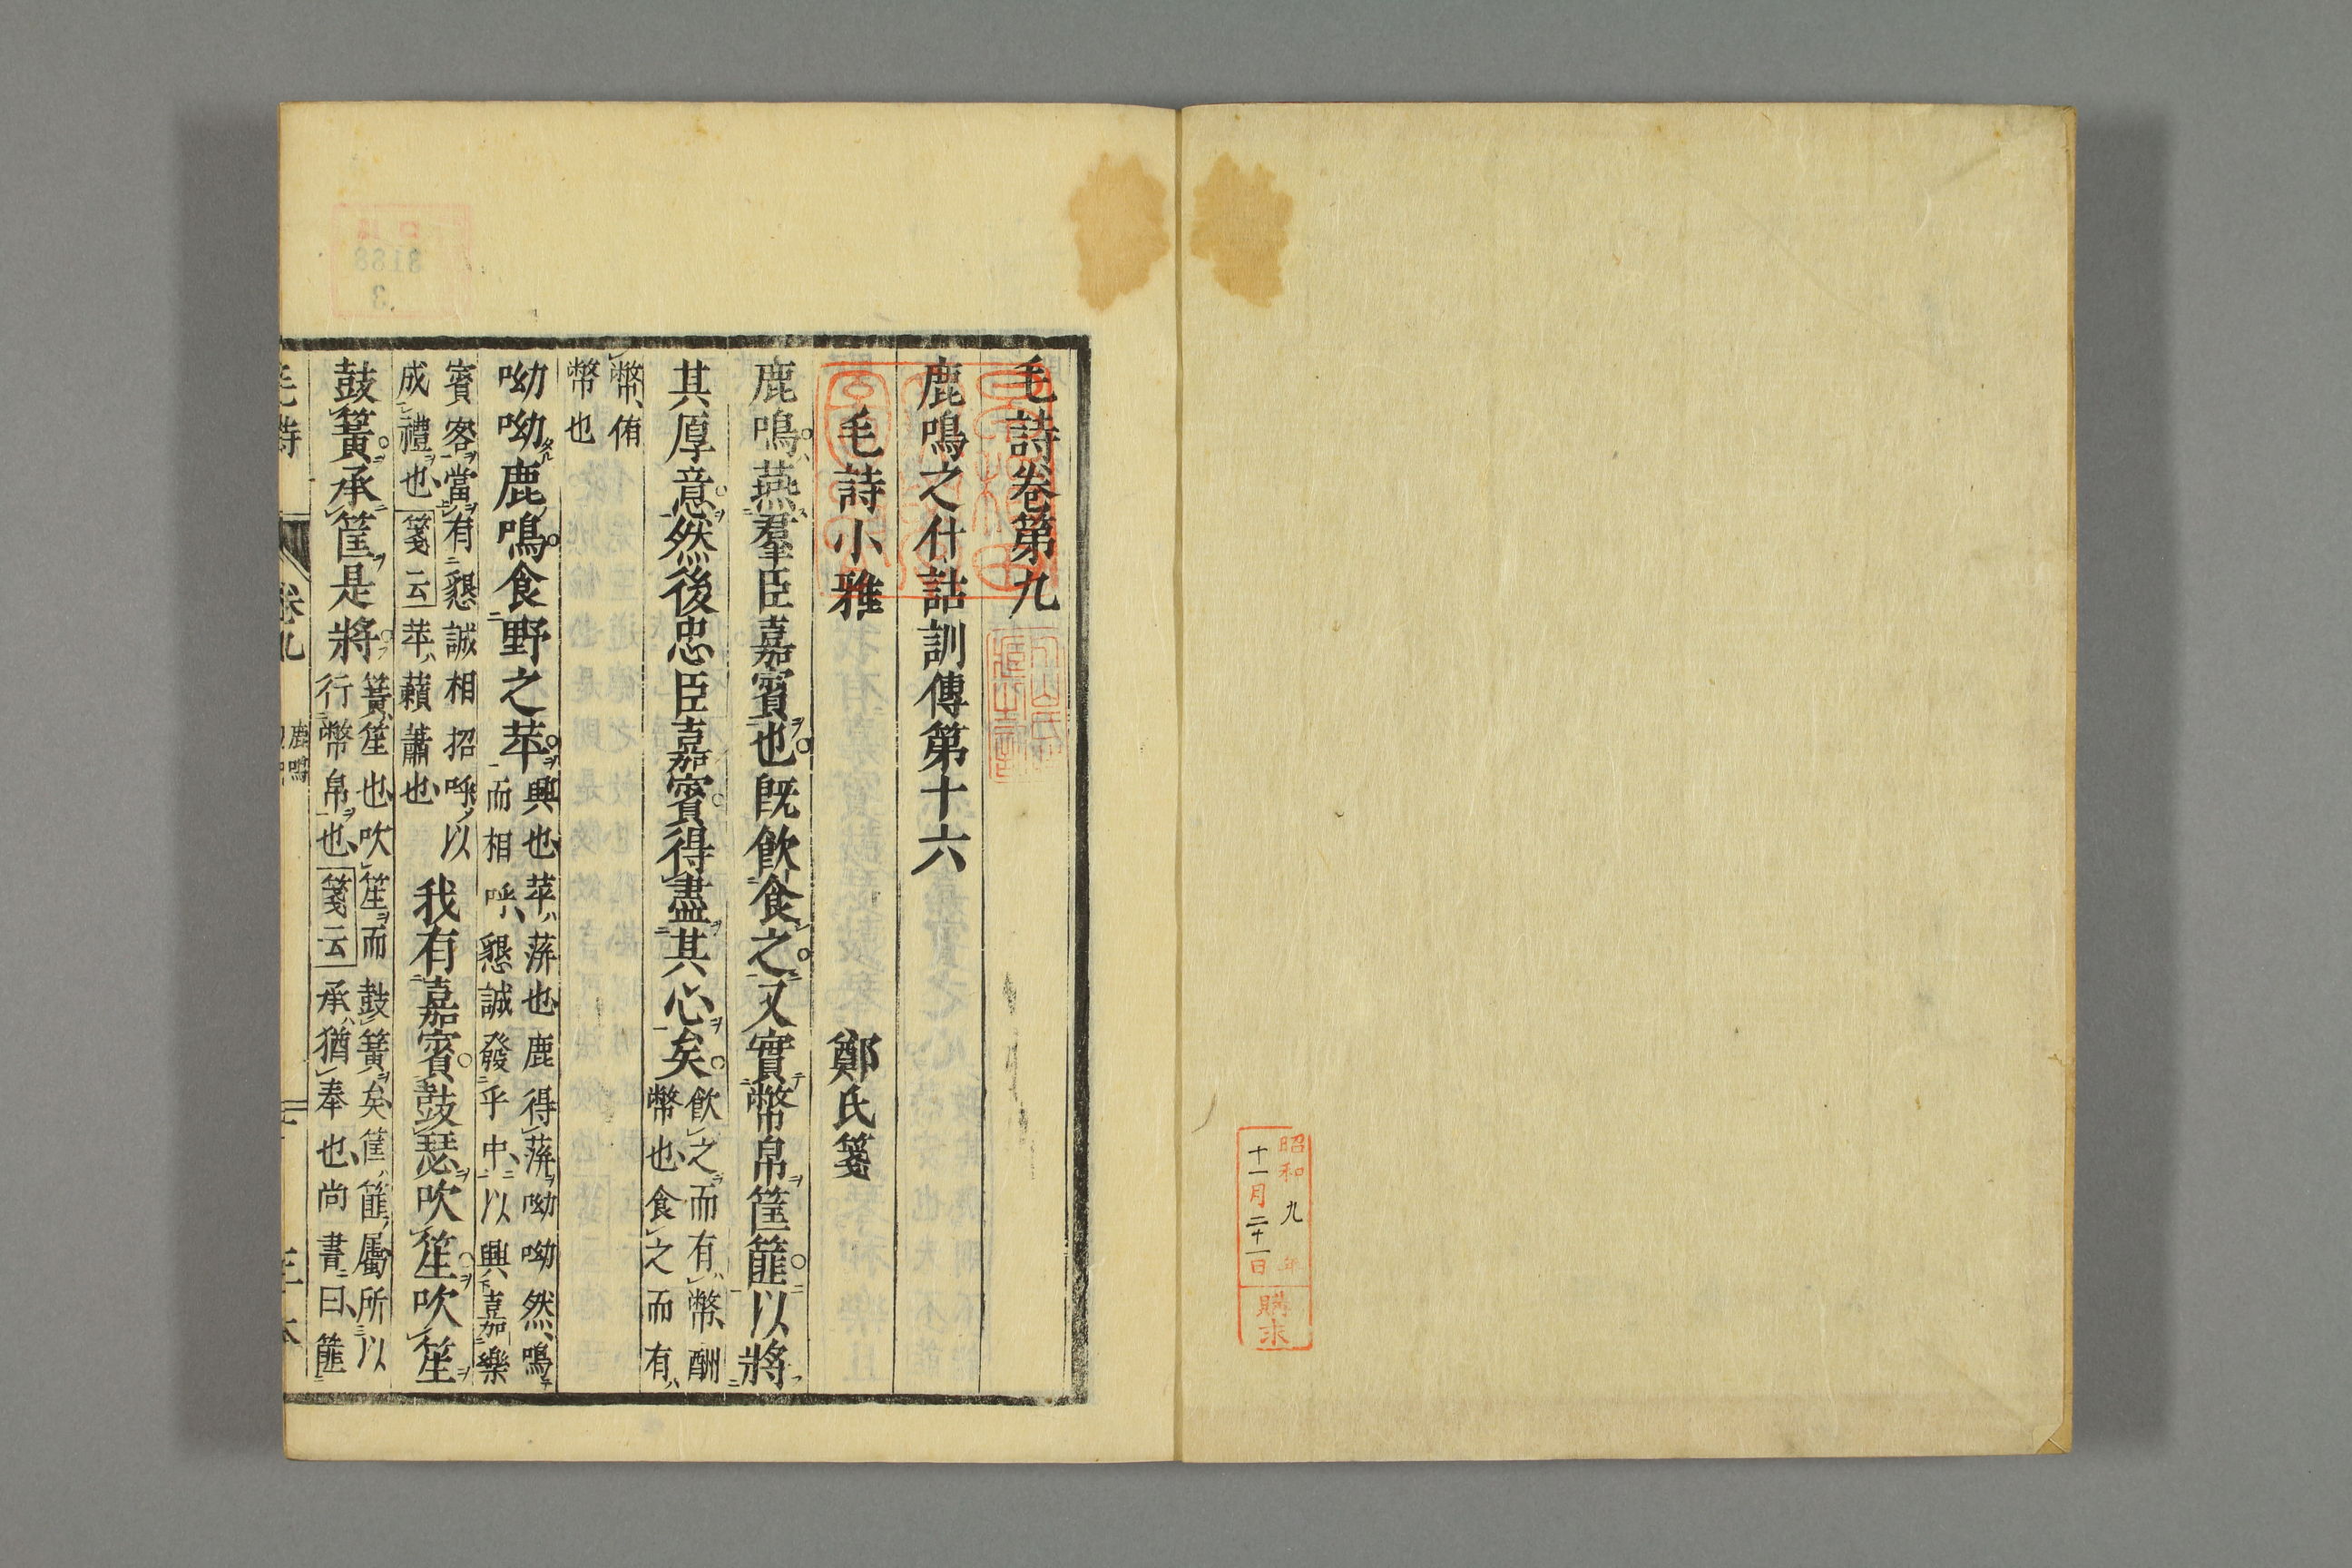 昭和九年
十一月二十一日
購求
毛詩卷第九
鹿鳴之什詁訓傳第十六
毛詩小雅　鄭氏箋
鹿鳴ハ燕羣臣嘉賓也既飮食之又實幣帛筐篚以將
其厚意然後忠臣嘉賓得盡其心矣
飮之而有幣酬
幣也食之而有
幣侑
幣也
呦呦鹿鳴食野之苹
興也苹ハ蓱也鹿得蓱呦呦然鳴
而相呼懇誠發乎中以興嘉樂
賓客當有懇誠相招呼以
成禮也箋云苹ハ藾蕭也
我有嘉賓鼓瑟吹笙吹笙
鼓簧承筐是將
簧笙也吹笙而鼓簧矣筐篚屬所以
行幣帛也箋云承ハ猶奉也尚書曰篚
毛詩　卷九　鹿鳴